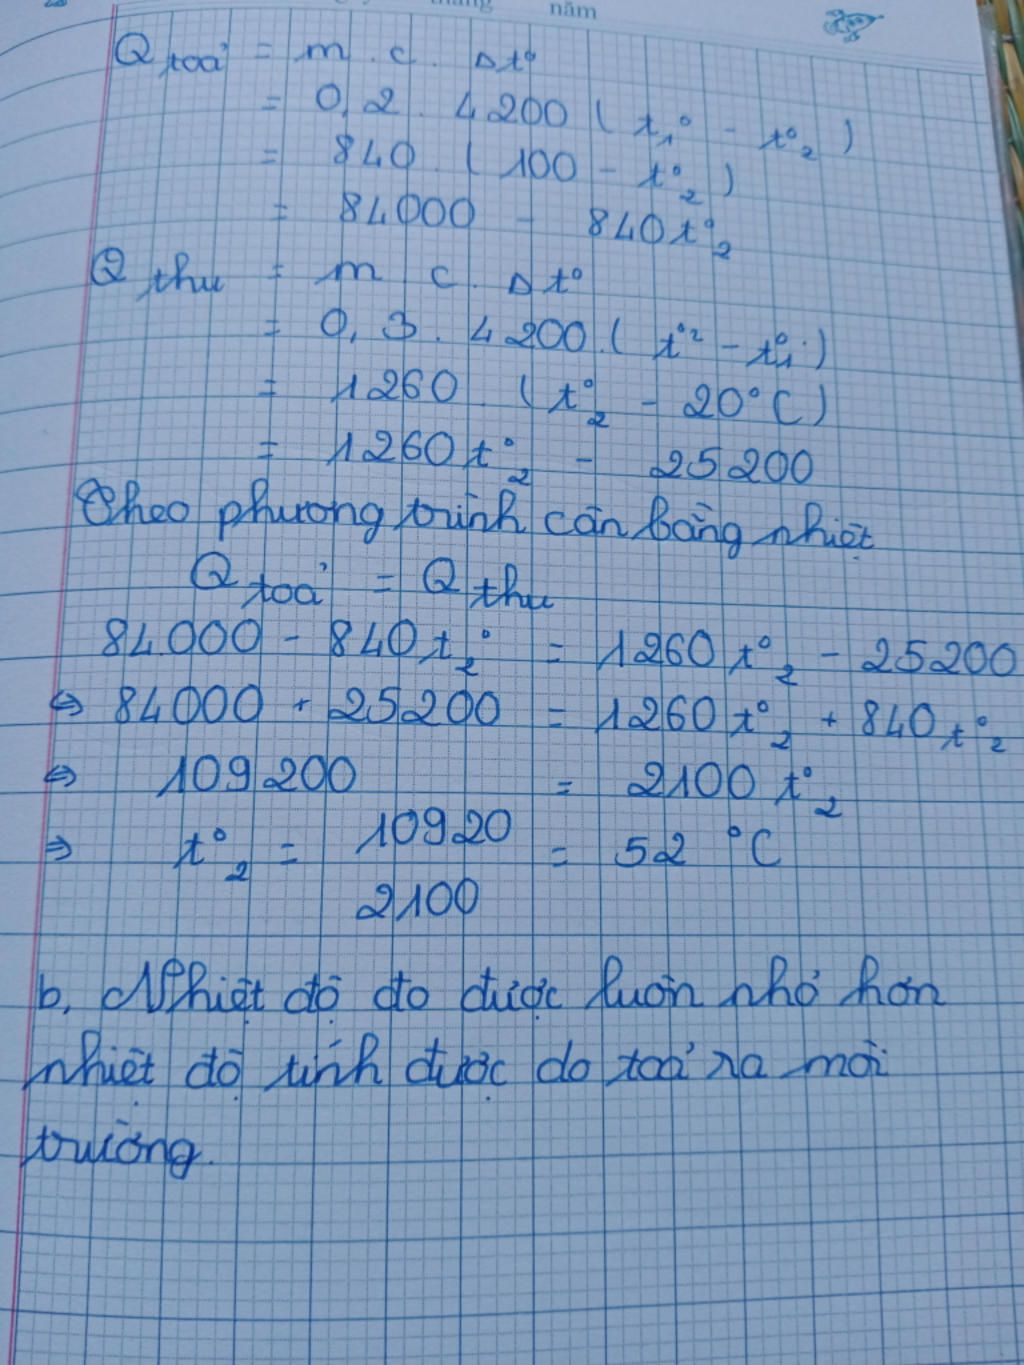 tháng năm
Q toả = m . c . Δt°
= 0,2 . 4200 ( t°₁ - t°₂ )
= 840 . ( 100 - t°₂ )
= 84000 - 840t°₂
Q thu = m c . Δt°
= 0,3 . 4200 . ( t°² - t°₁ )
= 1260 ( t°₂ - 20°C )
= 1260t°₂ - 25200
Theo phương trình cân bằng nhiệt
Q toả = Q thu
84000 - 840t°₂ = 1260t°₂ - 25200
⇔ 84000 + 25200 = 1260t°₂ + 840t°₂
⇔ 109200 = 2100t°₂
⇒ t°₂ = 10920 / 2100 = 52 °C
b, Nhiệt độ đo được luôn nhỏ hơn
nhiệt độ tính được do toả ra môi
trường.